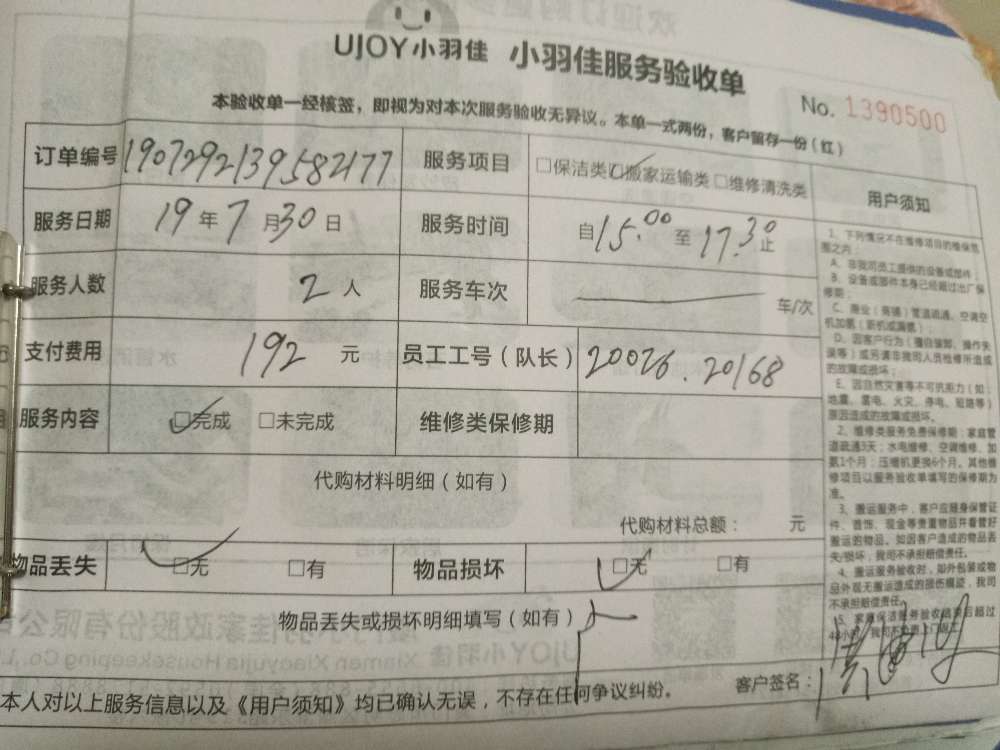 UJOY小羽佳 小羽佳服务验收单
No. 1390500
本验收单一经核签，即视为对本次服务验收无异议。本单一式两份，客户留存一份（红）
订单编号 1907292139582177 服务项目 □保洁类 ☑搬家运输类 □维修清洗类
服务日期 19年7月30日 服务时间 自15.00至17.30止
服务人数 2人 服务车次 车/次
支付费用 192元 员工工号（队长） 20026.20168
服务内容 ☑完成 □未完成 维修类保修期
代购材料明细（如有）
代购材料总额： 元
物品丢失 ☑无 □有 物品损坏 ☑无 □有
物品丢失或损坏明细填写（如有）
本人对以上服务信息以及《用户须知》均已确认无误，不存在任何争议纠纷。
客户签名：
用户须知
1、下列情况不在维修项目的维保范
围之内：
A、非我司员工提供的设备或部件；
B、设备或部件本身已经超过出厂保
修期；
C、商业（商铺）管道疏通、空调空
机加氟（新机或漏氟）；
D、因客户行为（擅自装卸、操作失
误等）或另请非我司人员检修所造成
的故障或损坏；
E、因自然灾害等不可抗能力（如：
地震、雷电、火灾、停电、短路等）
原因造成的故障或损坏。
2、维修类服务免费保修期：家庭管
道疏通3天；水电维修、空调维修、加
氨1个月；压缩机更换6个月。其他维
修项目以服务验收单填写的保修期为
准。
3、搬运服务中，客户应随身保管证
件、首饰、现金等贵重物品并看管好
搬运的物品。如因客户造成的物品丢
失/损坏，我司不承担赔偿责任。
4、搬运服务验收时，如外包装或物
品外观无搬运造成的损伤痕迹，我司
不承担赔偿责任。